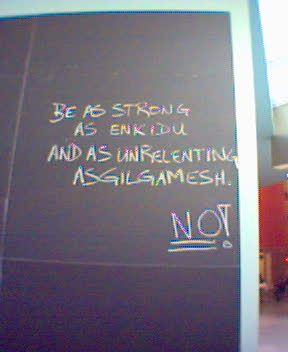 BE AS STRONG
AS ENKIDU
AND AS UNRELENTING
AS GILGAMESH.
NOT.